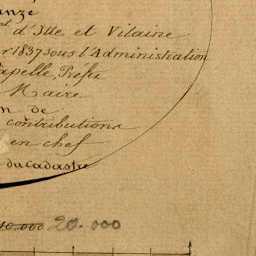 anzé
al d'Ille et Vilaine
r 1837 sous l'Administration
apelle, Préfet
Maire
n de
contributions
en chef
du cadastre
40.000 20.000